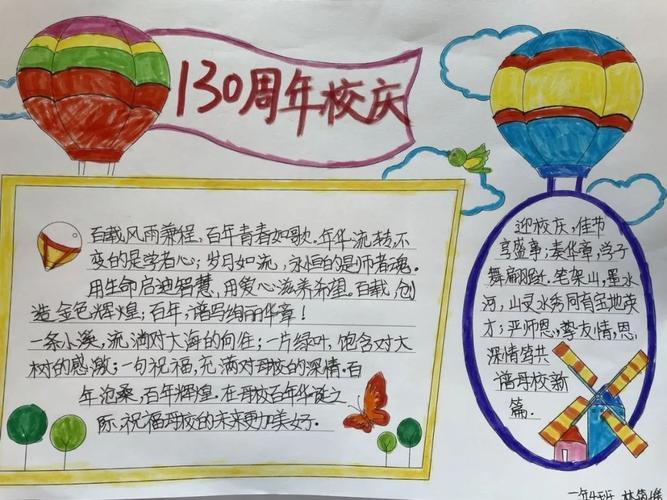 130周年校庆
百载风雨兼程，百年青春如歌.年华流转，不
变的是学者心；岁月如流，永恒的是师者魂.
用生命启迪智慧，用爱心滋养希望.百载，创
造金色辉煌；百年，谱写绚丽华章！
一条小溪，流淌对大海的向往；一片绿叶，饱含对大
树的感激；一句祝福，充满对母校的深情.百
年沧桑，百年辉煌.在母校百年华诞之
际，祝福母校的未来更加美好.
迎校庆，佳节
宫盛事；奏华章，学子
舞扁翩跹.笔架山，墨水
河，山灵水秀同育宝地英
才；严师恩，挚友情，恩
深情笃共
谱母校新
篇.